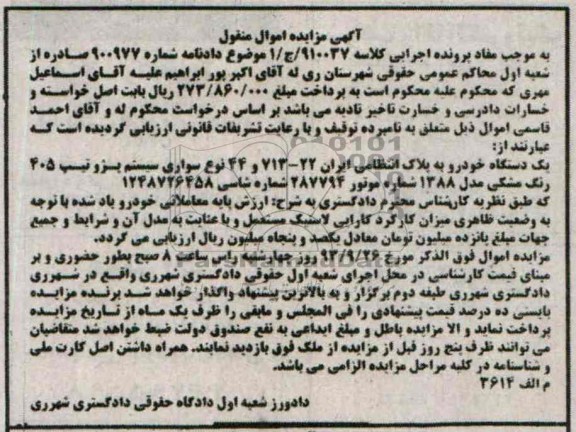 آگهی مزایده اموال منقول
به موجب مفاد پرونده اجرایی کلاسه ۹۱۰۰۳۷/ج/۱ موضوع دادنامه شماره ۹۰۰۹۷۷ صادره از
شعبه اول محاکم عمومی حقوقی شهرستان ری له آقای اکبر پور ابراهیم علیه آقای اسماعیل
مهری که محکوم علیه محکوم است به پرداخت مبلغ ۲۷۳/۸۶۰/۰۰۰ ریال بابت اصل خواسته و
خسارات دادرسی و خسارت تاخیر تادیه می باشد بر اساس درخواست محکوم له و آقای احمد
قاسمی اموال ذیل متعلق به نامبرده توقیف و با رعایت تشریفات قانونی ارزیابی گردیده است که
عبارتند از:
یک دستگاه خودرو به پلاک انتظامی ایران ۲۲-۷۱۳ و ۴۴ نوع سواری سیستم پژو تیپ ۴۰۵
رنگ مشکی مدل ۱۳۸۸ شماره موتور ۲۸۷۷۹۴ شماره شاسی ۱۲۴۸۷۲۶۴۵۸
که طبق نظریه کارشناس محترم دادگستری به شرح: ارزش پایه معاملاتی خودرو یاد شده با توجه
به وضعیت ظاهری میزان کارکرد کارایی لاستیک مستعمل و با عنایت به مدل آن و شرایط و جمیع
جهات مبلغ پانزده میلیون تومان معادل یکصد و پنجاه میلیون ریال ارزیابی می گردد.
مزایده اموال فوق الذکر مورخ ۹۲/۹/۲۶ روز چهارشنبه راس ساعت ۸ صبح بطور حضوری و بر
مبنای قیمت کارشناسی در محل اجرای شعبه اول حقوقی دادگستری شهرری واقع در شهرری
دادگستری شهرری طبقه دوم برگزار و به بالاترین پیشنهاد واگذار خواهد شد برنده مزایده
بایستی ده درصد قیمت پیشنهادی را فی المجلس و مابقی را ظرف یک ماه از تاریخ مزایده
پرداخت نماید و الا مزایده باطل و مبلغ ابداعی به نفع صندوق دولت ضبط خواهد شد متقاضیان
می توانند ظرف پنج روز قبل از مزایده از ملک فوق بازدید نمایند. همراه داشتن اصل کارت ملی
و شناسنامه در کلیه مراحل مزایده الزامی می باشد.
م الف ۳۶۱۴
دادورز شعبه اول دادگاه حقوقی دادگستری شهرری